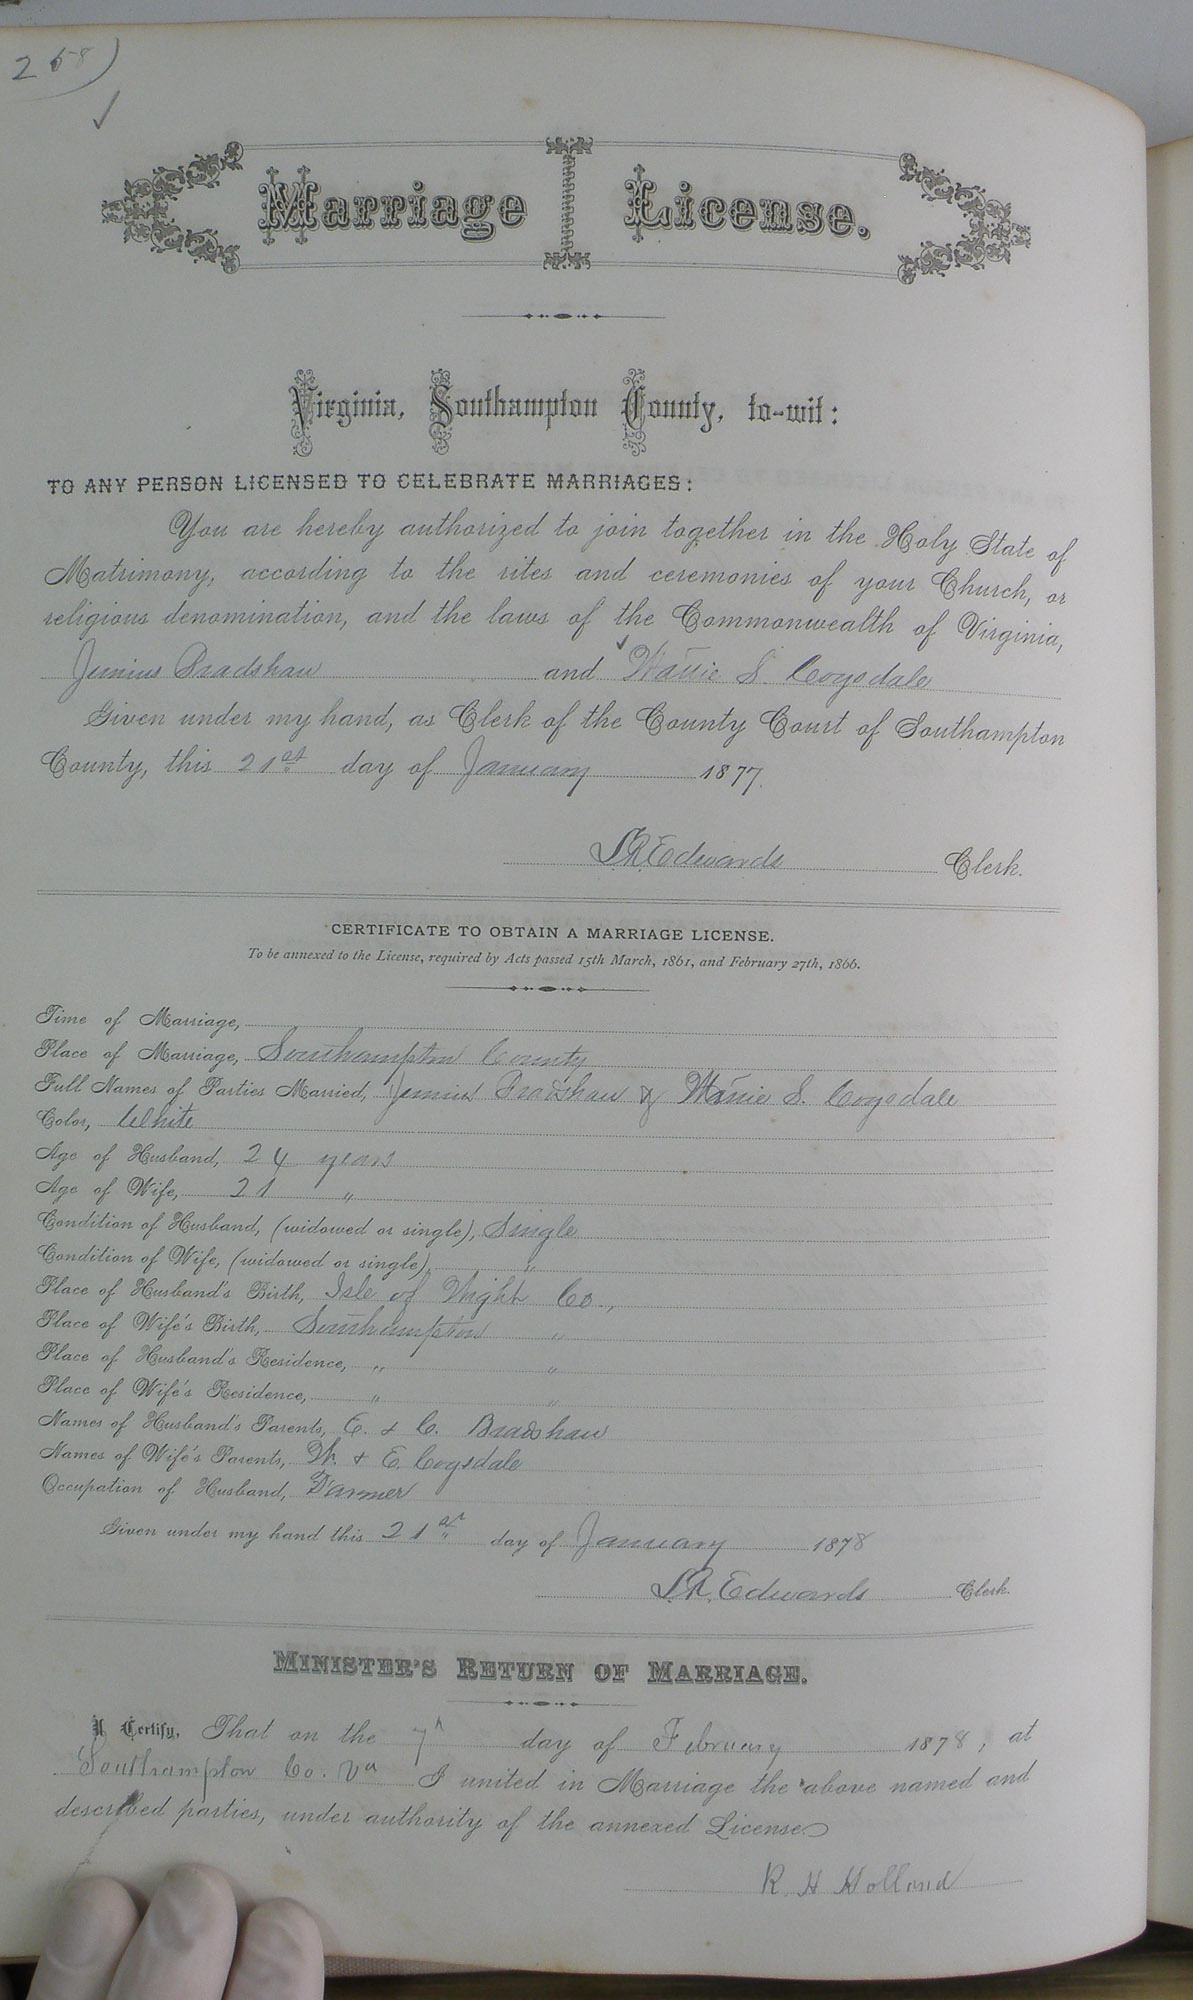 258)
✓
Marriage License.
Virginia, Southampton County, to-wit:
TO ANY PERSON LICENSED TO CELEBRATE MARRIAGES:
You are hereby authorized to join together in the Holy State of
Matrimony, according to the rites and ceremonies of your Church, or
religious denomination, and the laws of the Commonwealth of Virginia,
Junius Bradshaw and S. Cogsdale
Given under my hand, as Clerk of the County Court of Southampton
County, this 21st day of January 1877.
Edwards Clerk.
CERTIFICATE TO OBTAIN A MARRIAGE LICENSE.
To be annexed to the License, required by Acts passed 15th March, 1861, and February 27th, 1866.
Time of Marriage,
Place of Marriage, Southampton County
Full Names of Parties Married, Junius Bradshaw & S. Cogsdale
Color, White
Age of Husband, 24 years
Age of Wife, 21 "
Condition of Husband, (widowed or single), Single
Condition of Wife, (widowed or single) "
Place of Husband's Birth, Isle of Wight Co.,
Place of Wife's Birth, Southampton "
Place of Husband's Residence, " "
Place of Wife's Residence, " "
Names of Husband's Parents, E. & C. Bradshaw
Names of Wife's Parents, W. & E. Cogsdale
Occupation of Husband, Farmer
Given under my hand this 21st day of January 1878
Edwards Clerk.
MINISTER'S RETURN OF MARRIAGE.
I Certify, That on the 7th day of February 1878, at
Southampton Co. Va I united in Marriage the above named and
described parties, under authority of the annexed License
R. H Holland